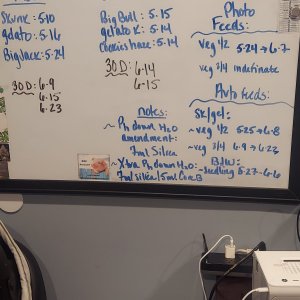 Skunk: 5·10
gelato: 5·16
Big Jack: 5·24
30 D: 6·9
6·15
6·23
Big Bull: 5·15
gelato K: 5·14
Cookies haze: 5·14
30 D: 6·14
6·15
Notes:
~ Ph down H2O
amendment:
7ml Silica
~ Xtra Ph down H2O:
7ml silica/5ml Core B
Photo
Feeds:
veg 1/2 5·24→6·7
veg 3/4 indefinate
Auto feeds:
SK/gel:
~veg 1/2 5·25→6·8
~veg 3/4 6·9→6·23
~Seedling 5·27-6·6